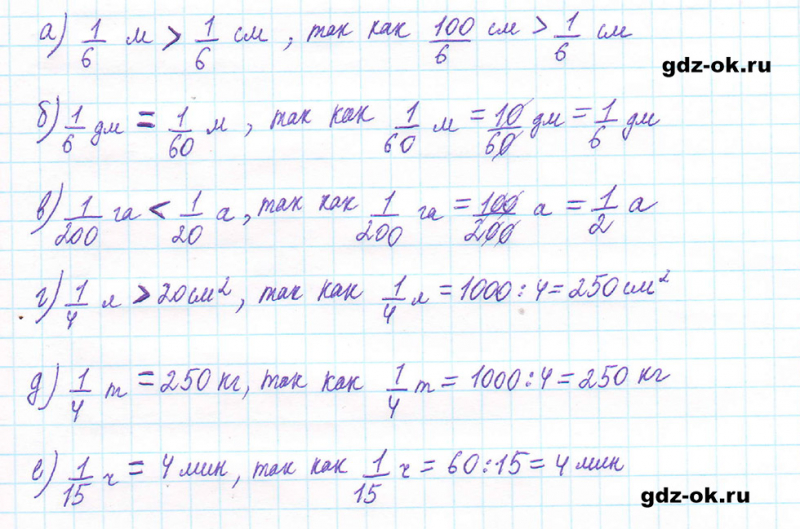 а) 1/6 м > 1/6 см, так как 100/6 см > 1/6 см
gdz-ok.ru
б) 1/6 дм = 1/60 м, так как 1/60 м = 10/60 дм = 1/6 дм
в) 1/200 га < 1/20 а, так как 1/200 га = 100/200 а = 1/2 а
г) 1/4 л > 20 см², так как 1/4 л = 1000 : 4 = 250 см²
д) 1/4 т = 250 кг, так как 1/4 т = 1000 : 4 = 250 кг
е) 1/15 ч = 4 мин, так как 1/15 ч = 60 : 15 = 4 мин
gdz-ok.ru